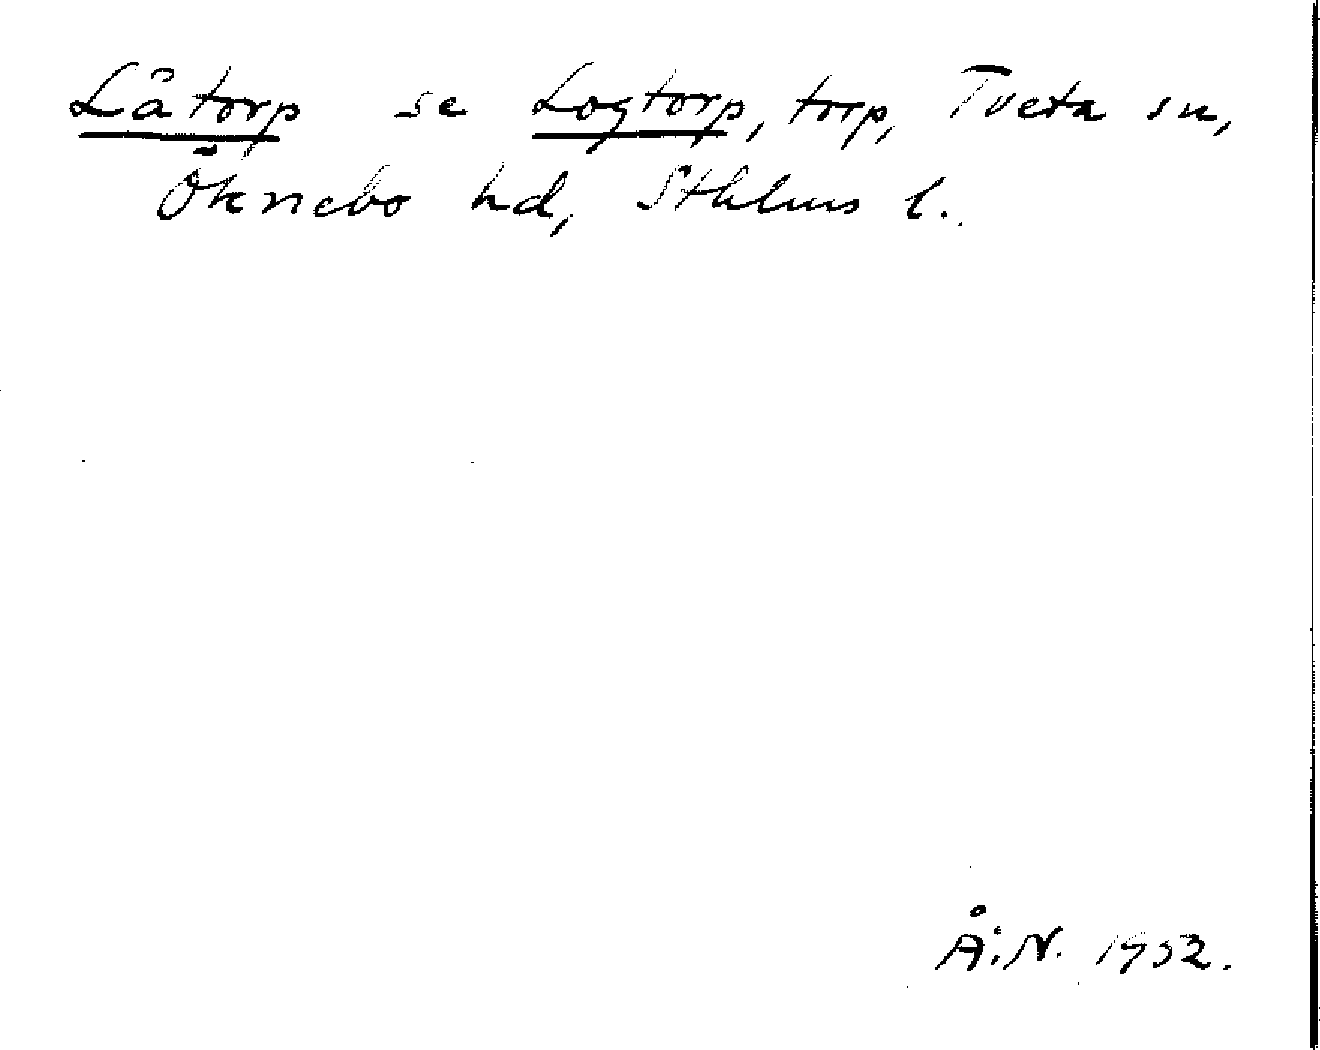 Låtorp se Logtorp, torp, Tveta sn,
Öknebo hd, Sthlms l.
Å.N. 1952.